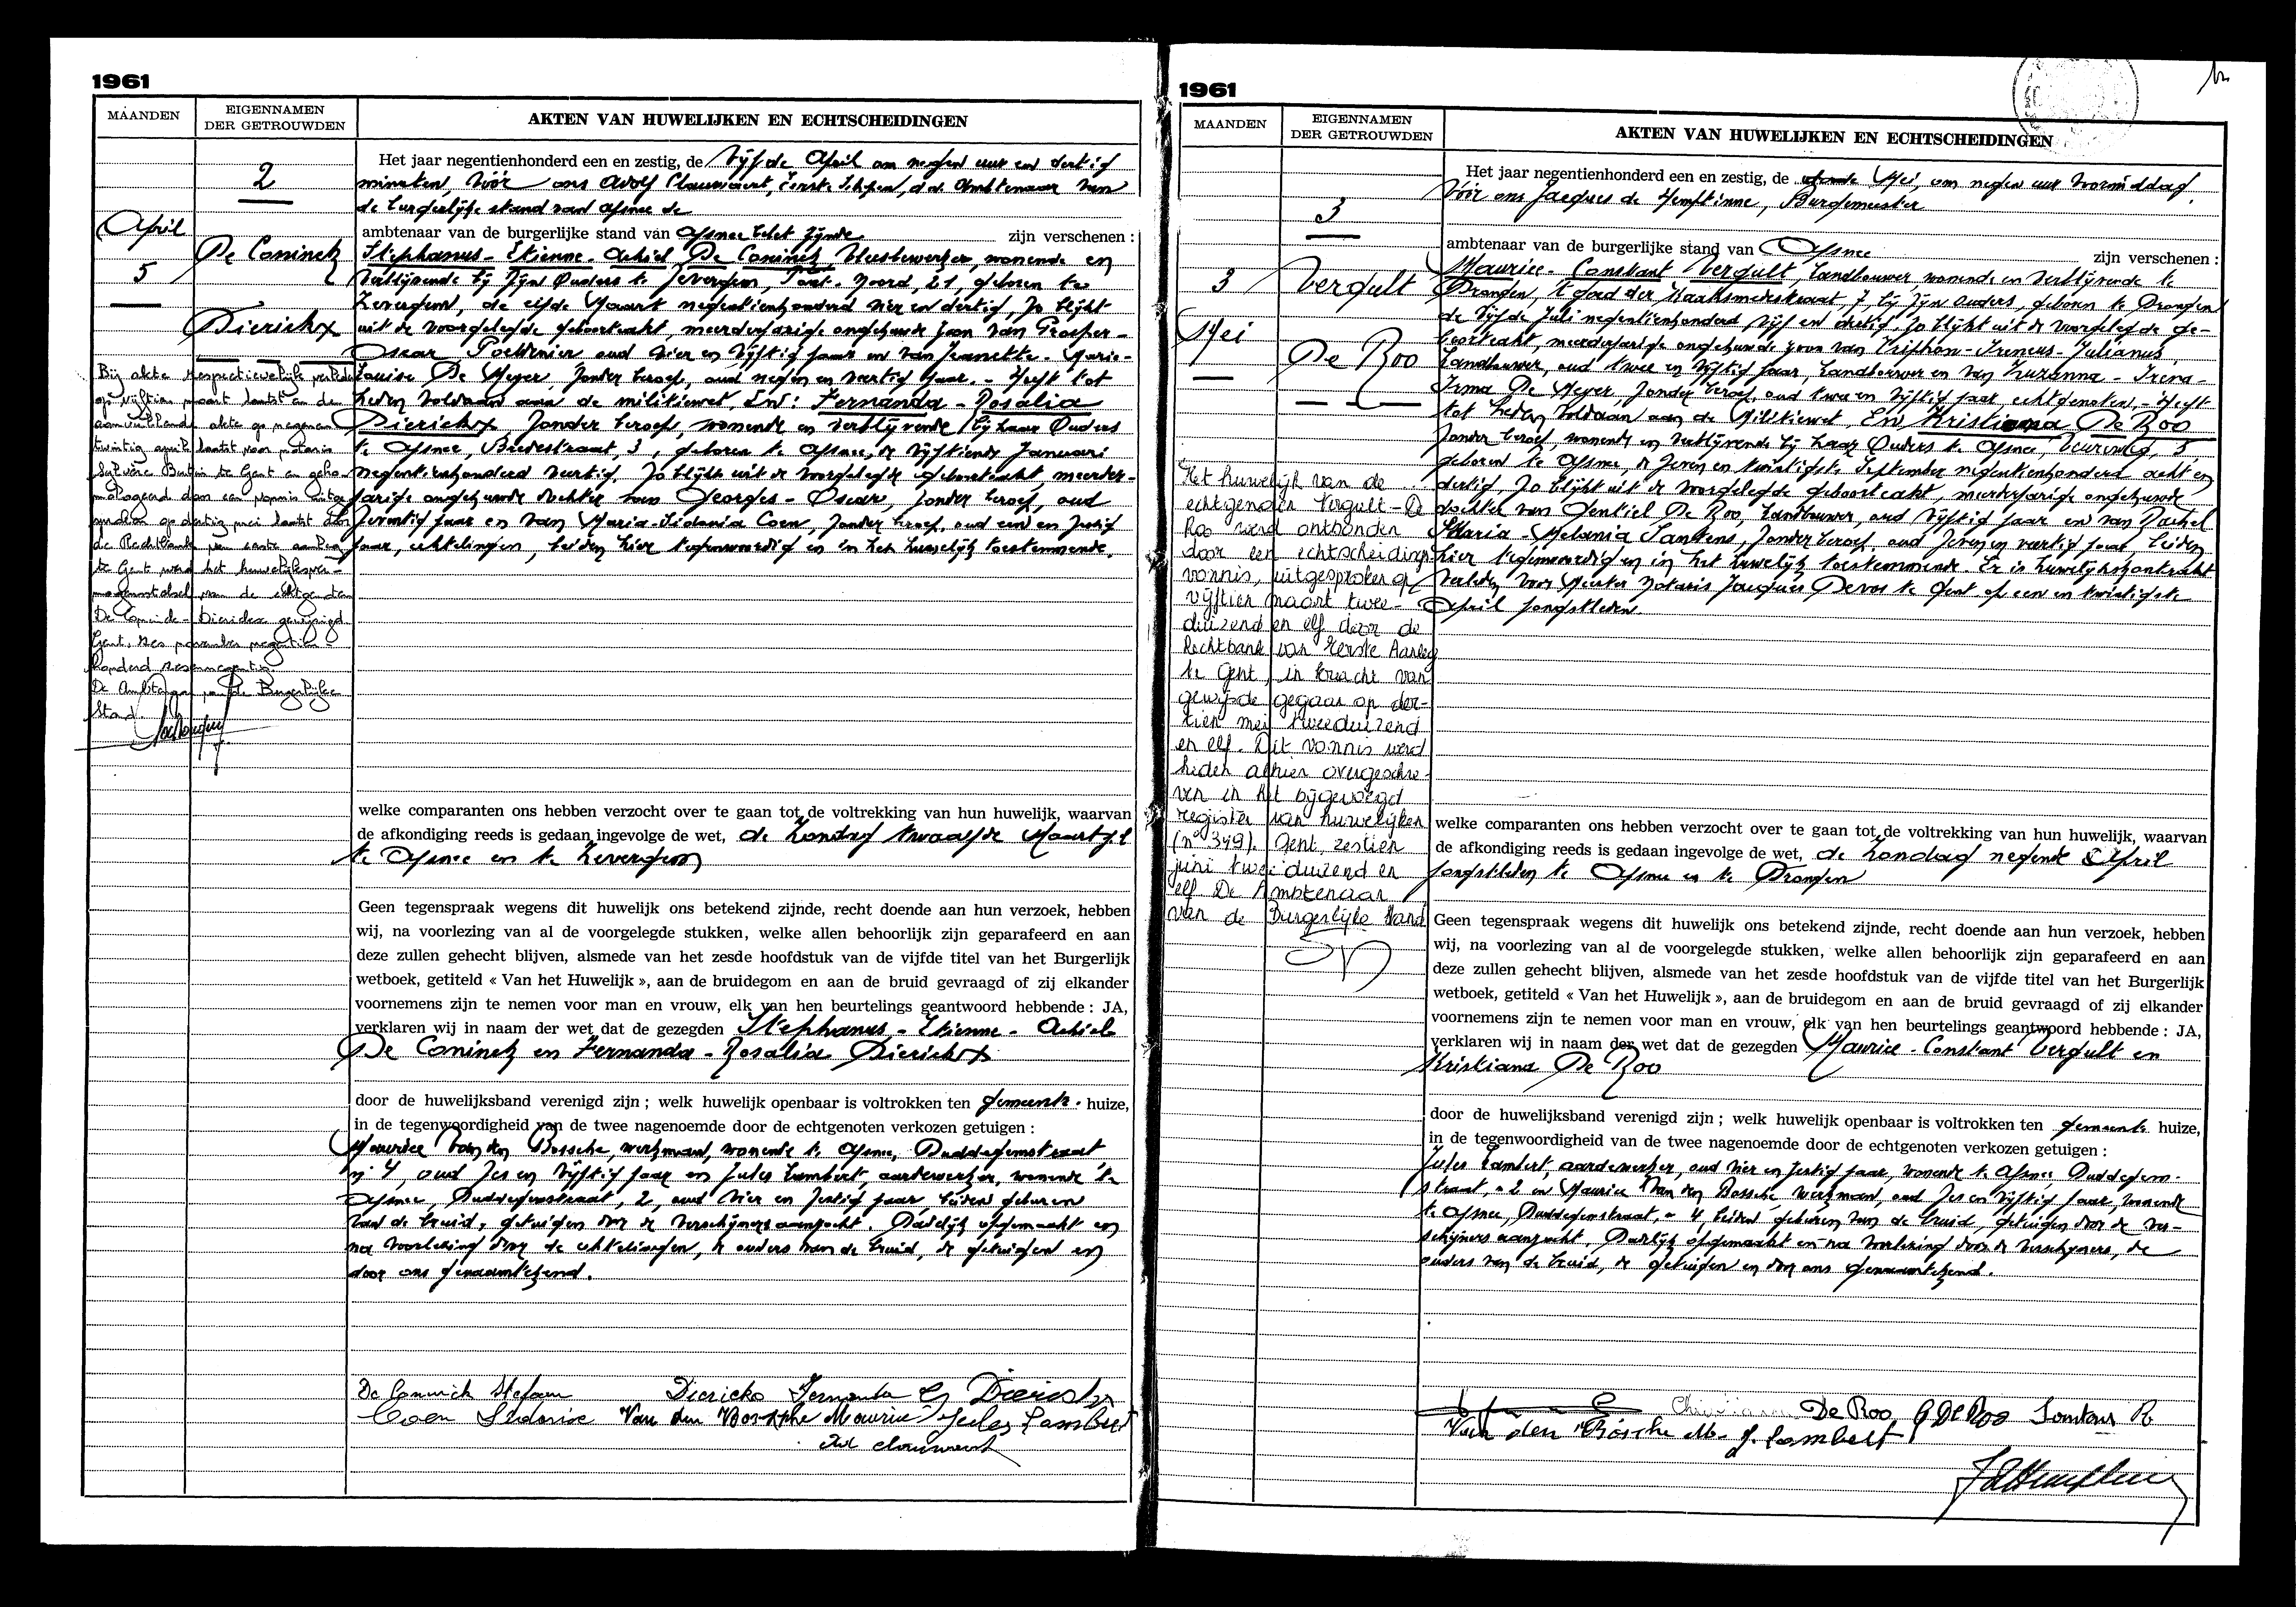 1961
MAANDEN
EIGENNAMEN
DER GETROUWDEN
AKTEN VAN HUWELIJKEN EN ECHTSCHEIDINGEN
2
April
5
De Coninck
Dierickx
Het jaar negentienhonderd een en zestig, de vijfde April om negen uur en dertig
minuten, vóór ons Adolf Clauwaert, Eerste Schepen, d.d. Ambtenaar van
de burgerlijke stand van Afsnee de
ambtenaar van de burgerlijke stand van Afsnee belet zijnde zijn verschenen :
Stephanus - Etienne - Achiel De Coninck, wonende en
verblijvende bij zijn Ouders te Zevergem, Noord, 21, geboren te
Zevergem, de elfde Maart negentienhonderd vier en dertig, zo blijkt
uit de voorgelegde geboorteakt, meerderjarige ongehuwde zoon van Prosper -
Oscar, oud vier en vijftig jaar en van Jeannette - Marie -
Louise De Meyer, zonder beroep, oud negen en veertig jaar. - Heeft tot
heden voldaan aan de militiewet. En: Fernanda - Rosalia
Dierickx, zonder beroep, wonende en verblijvende bij haar Ouders
te Afsnee, Biestestraat, 3, geboren te Afsnee, de vijftiende Januari
negentienhonderd veertig, zo blijkt uit de voorgelegde geboorteakt, meerder-
jarige ongehuwde dochter van Georges - Oscar, zonder beroep, oud
zeventig jaar en van Maria - Sidonia Coen, zonder beroep, oud een en zestig
jaar, echtelingen, beiden hier tegenwoordig en in het huwelijk toestemmende.
Bij akte respectievelijk verleden
op vijftien maart laatst en de
aanvullende akte op negenen
twintig april laatst voor notaris
te Gent en geho-
mologeerd door een vonnis uitge-
sproken op dertig mei laatst door
de Rechtbank van eerste aanleg
te Gent werd het huwelijksver-
mogenstelsel van de echtgenoten
De Coninck - Dierickx gewijzigd
Gent, zes november negentien-
honderd
De Ambtenaar van de Burgerlijke
Stand.
welke comparanten ons hebben verzocht over te gaan tot de voltrekking van hun huwelijk, waarvan
de afkondiging reeds is gedaan ingevolge de wet, de Zondag twaalfde Maart j.l
te Afsnee en te Zevergem
Geen tegenspraak wegens dit huwelijk ons betekend zijnde, recht doende aan hun verzoek, hebben
wij, na voorlezing van al de voorgelegde stukken, welke allen behoorlijk zijn geparafeerd en aan
deze zullen gehecht blijven, alsmede van het zesde hoofdstuk van de vijfde titel van het Burgerlijk
wetboek, getiteld « Van het Huwelijk », aan de bruidegom en aan de bruid gevraagd of zij elkander
voornemens zijn te nemen voor man en vrouw, elk van hen beurtelings geantwoord hebbende : JA,
verklaren wij in naam der wet dat de gezegden Stephanus - Etienne - Achiel
De Coninck en Fernanda - Rosalia Dierickx
door de huwelijksband verenigd zijn ; welk huwelijk openbaar is voltrokken ten gemeente huize,
in de tegenwoordigheid van de twee nagenoemde door de echtgenoten verkozen getuigen :
Maurice Van den Bossche, werkman, wonende te Afsnee, Duddegemstraat
nr 4, oud zes en vijftig jaar en Jules Lambert, aardewerker, wonende te
Afsnee, Duddegemstraat, 2, oud vier en zestig jaar, beiden geburen
van de bruid, getuigen door de verschijners aanzocht. Dadelijk opgemaakt en
na voorlezing door de echtelingen, de ouders van de bruid, de getuigen en
door ons genaamtekend.
De Coninck Stefaan Dierickx Fernanda G Dierickx
Coen Sidonie Van den Bossche Maurice Jules Lambert
Ad Clauwaert
1961
MAANDEN
EIGENNAMEN
DER GETROUWDEN
AKTEN VAN HUWELIJKEN EN ECHTSCHEIDINGEN
3
3
Mei
Vergult
De Roo
Het jaar negentienhonderd een en zestig, de derde Mei, om negen uur voormiddag.
Vóór ons Jacques de Hemptinne, Burgemeester
ambtenaar van de burgerlijke stand van Afsnee zijn verschenen :
Maurice - Constant Vergult, Landbouwer, wonende en verblijvende te
Drongen, 7, bij zijn ouders, geboren te Drongen
de vijfde Juli negentienhonderd vijf en dertig, zo blijkt uit de voorgelegde ge-
boorteakt, meerderjarige ongehuwde zoon van Triphon - Ireneus - Julianus,
Landbouwer, oud twee en vijftig jaar, Landbouwer en van Suzanna - Irena -
Irma De Meyer, zonder beroep, oud twee en vijftig jaar, echtgenoten. - Heeft
tot heden voldaan aan de Militiewet, En Kristiana De Roo
zonder beroep, wonende en verblijvende bij haar Ouders te Afsnee, Veurestraat, 5,
geboren te Afsnee, de zeven en twintigste September negentienhonderd acht en
dertig, zo blijkt uit de voorgelegde geboorteakt, meerderjarige ongehuwde
dochter van Gentiel De Roo, Landbouwer, oud vijftig jaar en van Rachel
Maria - Melania Santens, zonder beroep, oud zeven en veertig jaar beiden
hier tegenwoordig en in het huwelijk toestemmende. Er is huwelijkskontrakt
verleden voor Meester Notaris Jacques Devos te Gent op een en twintigste
April jongstleden.
Het huwelijk van de
echtgenoten Vergult - De
Roo werd ontbonden
door een echtscheidings
vonnis, uitgesproken op
vijftien maart twee-
duizend en elf door de
Rechtbank van Eerste Aanleg
te Gent, in kracht van
gewijsde gegaan op der-
tien mei tweeduizend
en elf. Dit vonnis werd
heden alhier overgeschre-
ven in het bijgevoegd
register van huwelijken
(n° 349). Gent, zestien
juni tweeduizend en
elf De Ambtenaar
van de Burgerlijke Stand
welke comparanten ons hebben verzocht over te gaan tot de voltrekking van hun huwelijk, waarvan
de afkondiging reeds is gedaan ingevolge de wet, de Zondag negende April
jongstleden te Afsnee en te Drongen
Geen tegenspraak wegens dit huwelijk ons betekend zijnde, recht doende aan hun verzoek, hebben
wij, na voorlezing van al de voorgelegde stukken, welke allen behoorlijk zijn geparafeerd en aan
deze zullen gehecht blijven, alsmede van het zesde hoofdstuk van de vijfde titel van het Burgerlijk
wetboek, getiteld « Van het Huwelijk », aan de bruidegom en aan de bruid gevraagd of zij elkander
voornemens zijn te nemen voor man en vrouw, elk van hen beurtelings geantwoord hebbende : JA,
verklaren wij in naam der wet dat de gezegden Maurice - Constant Vergult en
Kristiana De Roo
door de huwelijksband verenigd zijn ; welk huwelijk openbaar is voltrokken ten gemeente huize,
in de tegenwoordigheid van de twee nagenoemde door de echtgenoten verkozen getuigen :
Jules Lambert, aardewerker, oud vier en zestig jaar, wonende te Afsnee, Duddegem-
straat, n° 2 en Maurice Van den Bossche werkman, oud zes en vijftig jaar, wonende
te Afsnee, Duddegemstraat, n° 4, beiden geburen van de bruid, getuigen door de ver-
schijners aanzocht. Dadelijk opgemaakt en na voorlezing door de verschijners, de
ouders van de bruid, de getuigen en door ons genaamtekend.
De Roo G De Roo Santens R
Van den Bossche M. J. Lambert